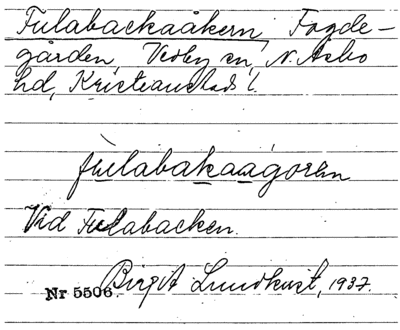 Fulabackaåkern, Fogde-
gården, Vedby sn, N. Åsbo
hd, Kristianstads l.
fu̲labak̲aå̲gorän
Vid Fulabacken.
Nr 5506. Birgit Lundkvist, 1937.